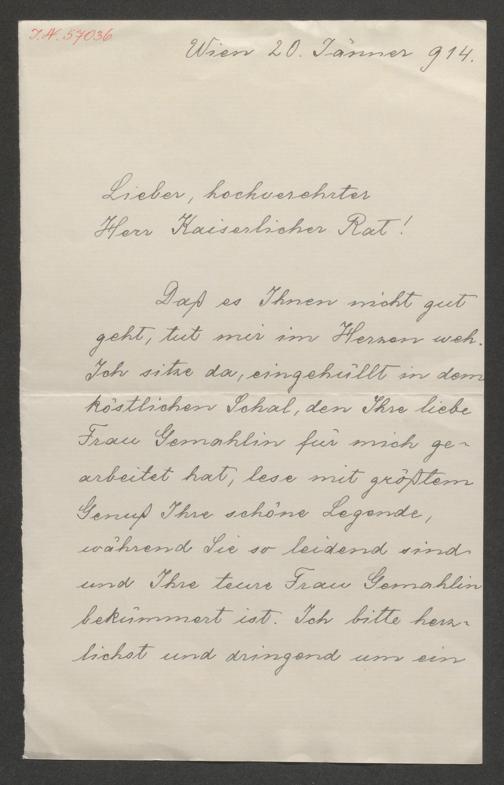 I.N. 57036
Wien 20. Jänner 914.
Lieber, hochverehrter
Herr Kaiserlicher Rat!
Daß es Ihnen nicht gut
geht, tut mir im Herzen weh.
Ich sitze da, eingehüllt in dem
köstlichen Schal, den Ihre liebe
Frau Gemahlin für mich ge-
arbeitet hat, lese mit größtem
Genuß Ihre schöne Legende,
während Sie so leidend sind
und Ihre teure Frau Gemahlin
bekümmert ist. Ich bitte herz-
lichst und dringend um ein